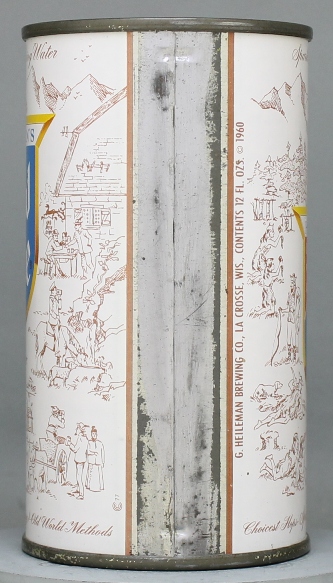 Water
'S
Old World Methods
G. HEILEMAN BREWING CO., LA CROSSE, WIS. CONTENTS 12 FL. OZS. © 1960
Choicest Hops